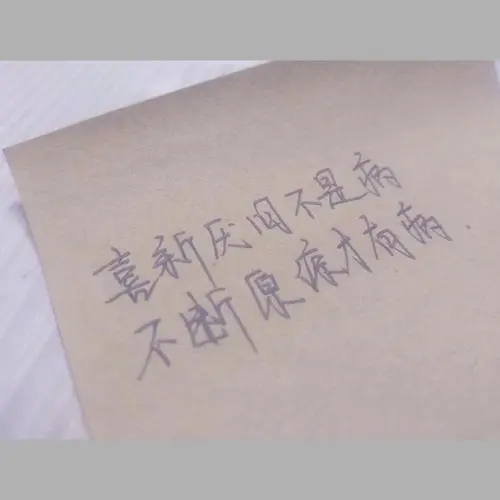 喜新厌旧不是病
不断原谅才有病.